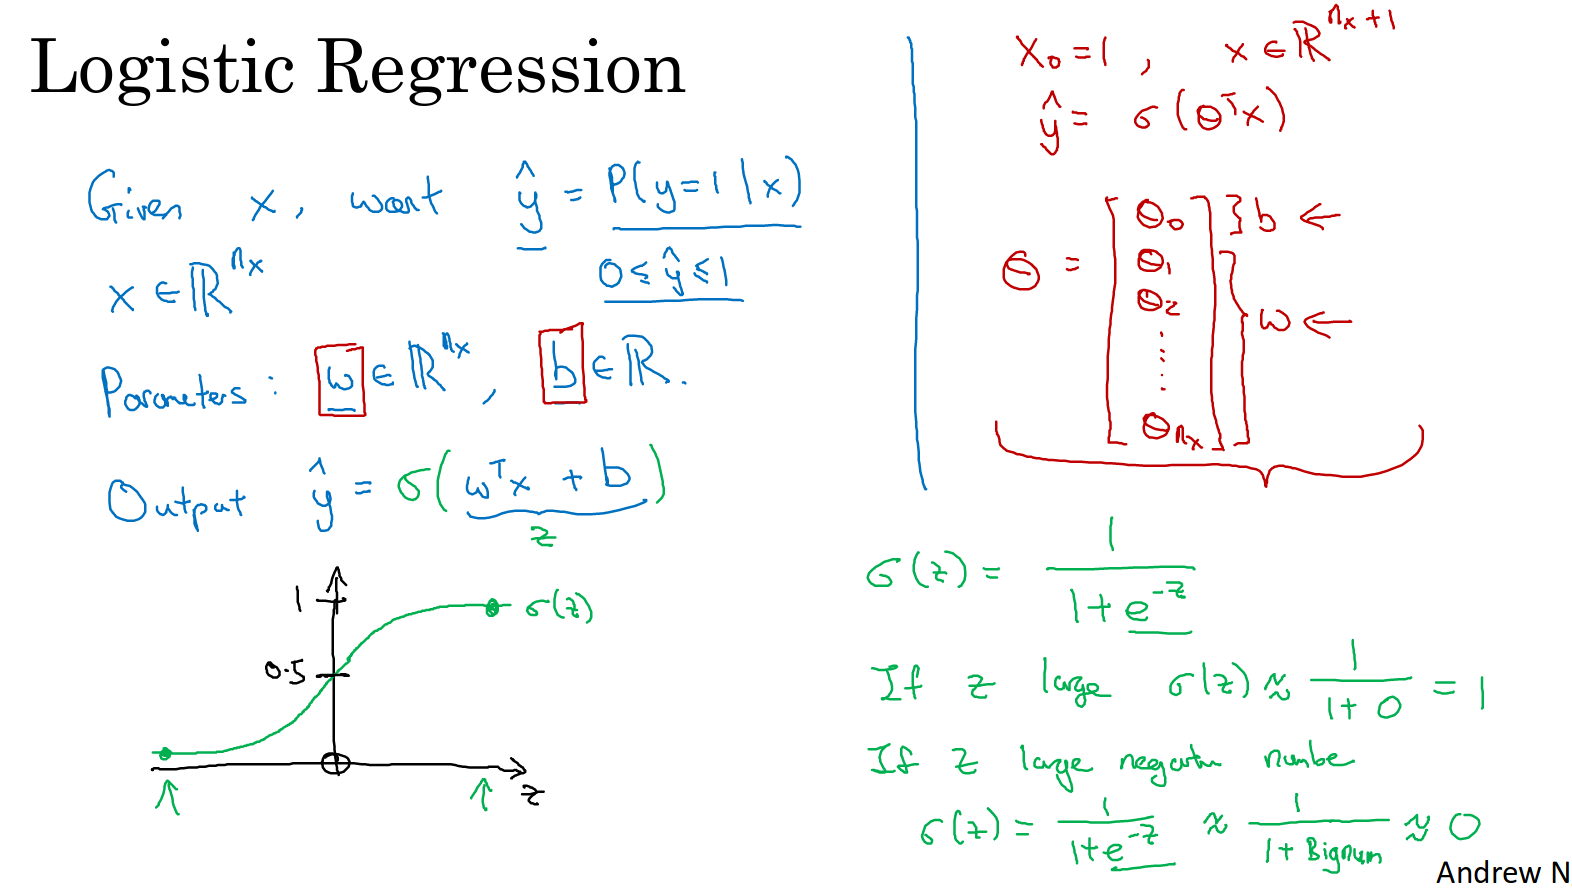 Logistic Regression
Given x, want ŷ = P(y=1|x)
0 ≤ ŷ ≤ 1
x ∈ ℝ^{n_x}
Parameters: w ∈ ℝ^{n_x}, b ∈ ℝ.
Output ŷ = σ(w^T x + b)
z
1
0.5
σ(z)
z
x_0 = 1, x ∈ ℝ^{n_x+1}
ŷ = σ(θ^T x)
θ = [θ_0 } b ←
θ_1
θ_2
⋮
θ_{n_x}] } w ←
σ(z) = 1/(1+e^{-z})
If z large σ(z) ≈ 1/(1+0) = 1
If z large negative number
σ(z) = 1/(1+e^{-z}) ≈ 1/(1+Bignum) ≈ 0
Andrew N